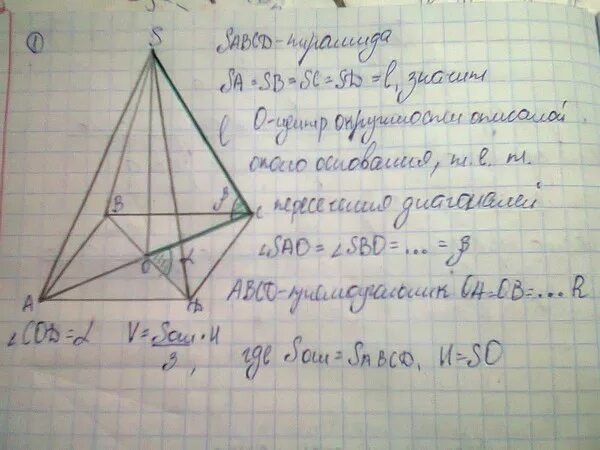 ①
S
SABCD - пирамида
SA = SB = SC = SD = l, значит
l О-центр окружности описаной
около основания, т.е. т.
B β C пересечения диагоналей
∠SAO = ∠SBO = ... = β
O α
A D ABCD-прямоугольник OA=OB=... R
∠COD = α V = Sосн·H / 3, где Sосн = SABCD, H = SO